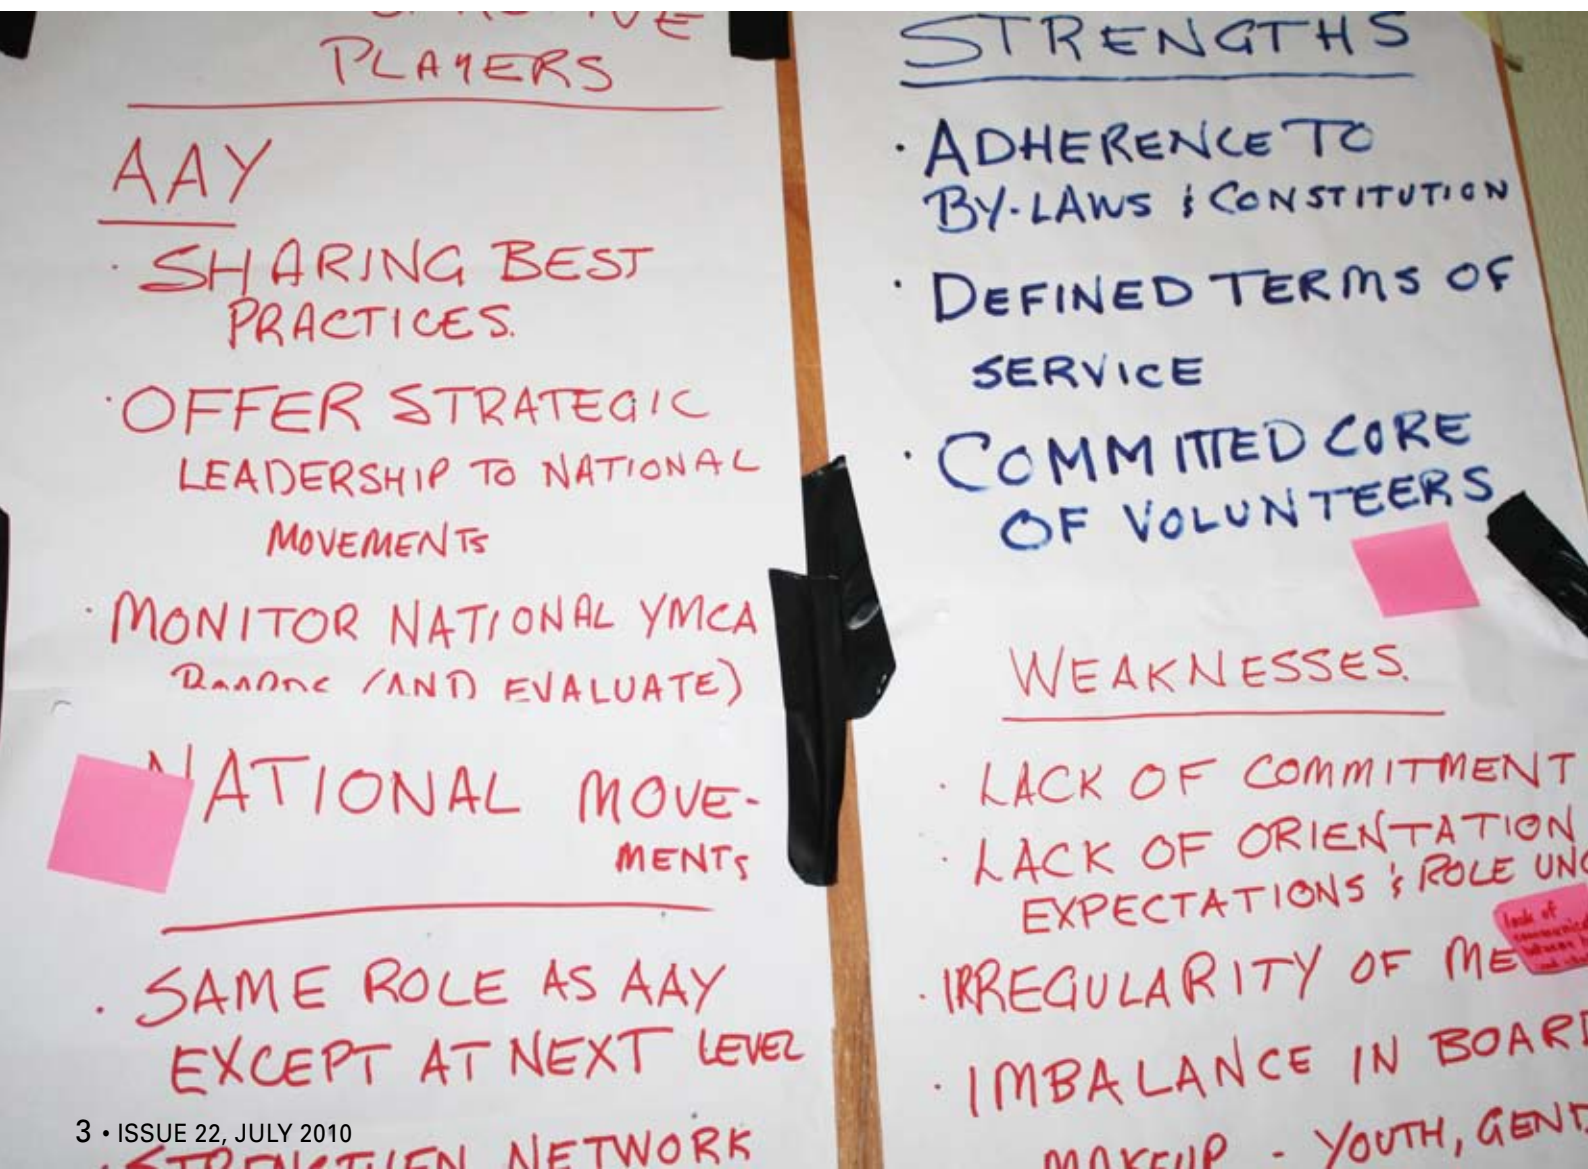 PLAYERS
AAY
· SHARING BEST
PRACTICES.
· OFFER STRATEGIC
LEADERSHIP TO NATIONAL
MOVEMENTS
· MONITOR NATIONAL YMCA
(AND EVALUATE)
NATIONAL MOVE-
MENTS
· SAME ROLE AS AAY
EXCEPT AT NEXT LEVEL
· STRENGTHEN NETWORK
STRENGTHS
· ADHERENCE TO
BY-LAWS & CONSTITUTION
· DEFINED TERMS OF
SERVICE
· COMMITTED CORE
OF VOLUNTEERS
WEAKNESSES.
· LACK OF COMMITMENT
· LACK OF ORIENTATION
EXPECTATIONS & ROLE UNC
lack of
· IRREGULARITY OF ME
· IMBALANCE IN BOARD
MAKEUP - YOUTH, GEND
3 • ISSUE 22, JULY 2010